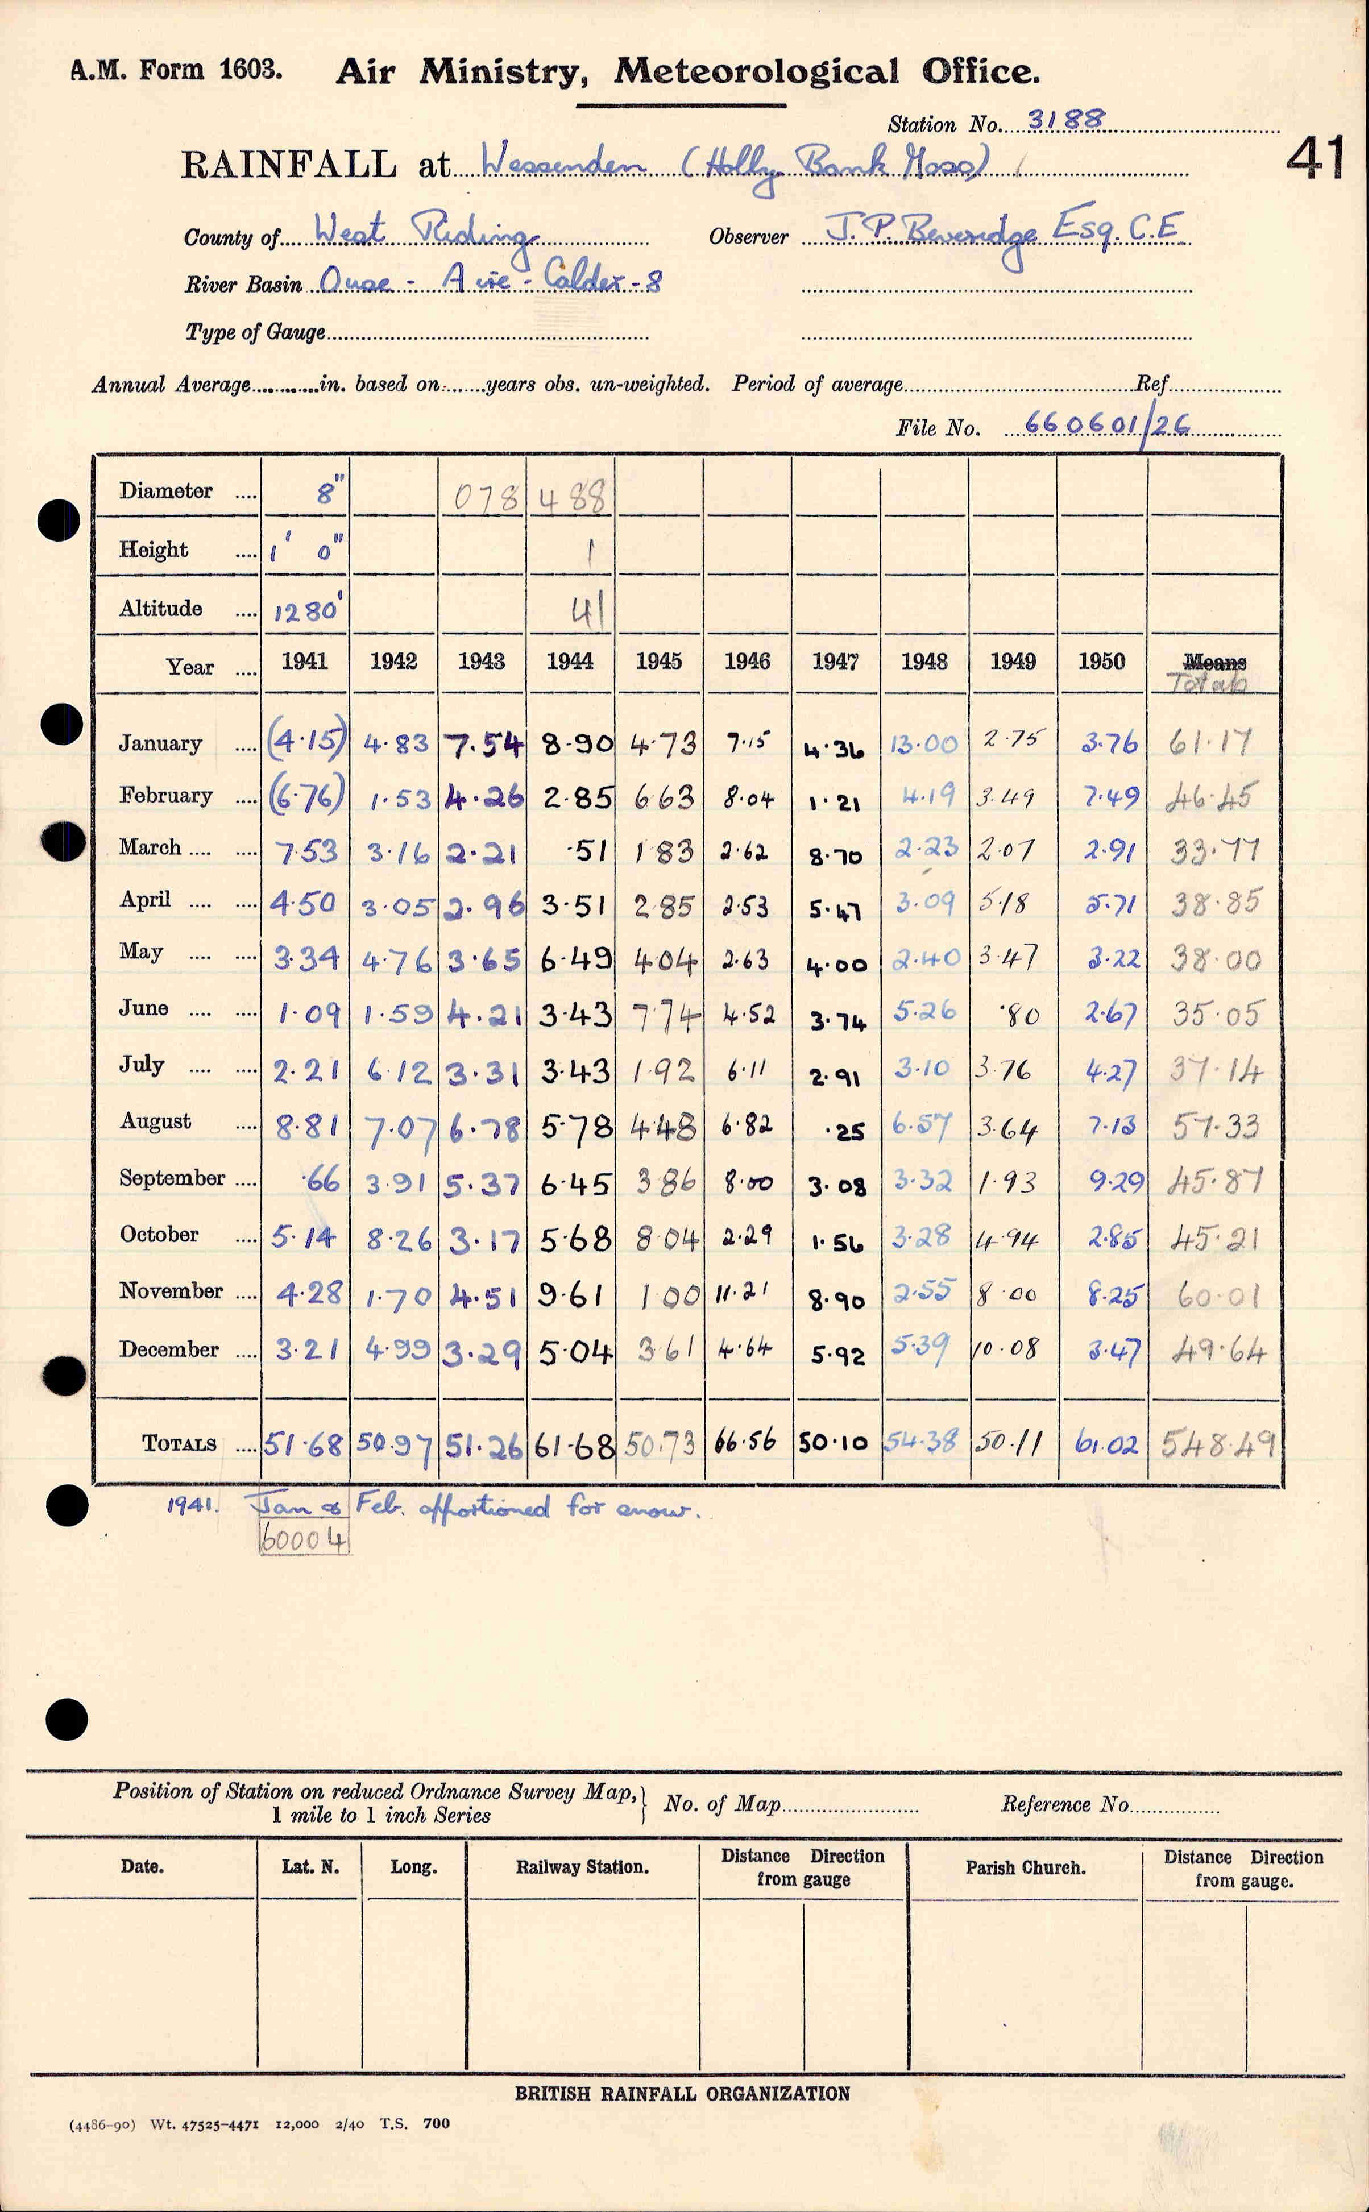 A.M. Form 1603. Air Ministry, Meteorological Office.
Station No. 3188
41
RAINFALL at Wessenden (Holly Bank Moss)
County of West Riding Observer J.P. Beveridge Esq. C.E.
River Basin Ouse - Aire - Calder - 8
Type of Gauge
Annual Average in. based on years obs. un-weighted. Period of average Ref
File No. 660601/26
Diameter 8" 078 488
Height 1' 0" 1
Altitude 1280' 41
Year 1941 1942 1943 1944 1945 1946 1947 1948 1949 1950 Means
Totals
January (4.15) 4.83 7.54 8.90 4.73 7.15 4.36 13.00 2.75 3.76 61.17
February (6.76) 1.53 4.26 2.85 6.63 8.04 1.21 4.19 3.49 7.49 46.45
March 7.53 3.16 2.21 .51 1.83 2.62 8.70 2.23 2.07 2.91 33.77
April 4.50 3.05 2.96 3.51 2.85 2.53 5.47 3.09 5.18 5.71 38.85
May 3.34 4.76 3.65 6.49 4.04 2.63 4.00 2.40 3.47 3.22 38.00
June 1.09 1.59 4.21 3.43 7.74 4.52 3.74 5.26 .80 2.67 35.05
July 2.21 6.12 3.31 3.43 1.92 6.11 2.91 3.10 3.76 4.27 37.14
August 8.81 7.07 6.78 5.78 4.48 6.82 .25 6.57 3.64 7.13 57.33
September .66 3.91 5.37 6.45 3.86 8.00 3.08 3.32 1.93 9.29 45.87
October 5.14 8.26 3.17 5.68 8.04 2.29 1.56 3.28 4.94 2.85 45.21
November 4.28 1.70 4.51 9.61 1.00 11.21 8.90 2.55 8.00 8.25 60.01
December 3.21 4.99 3.29 5.04 3.61 4.64 5.92 5.39 10.08 3.47 49.64
TOTALS 51.68 50.97 51.26 61.68 50.73 66.56 50.10 54.38 50.11 61.02 548.49
1941. Jan & Feb. apportioned for snow.
60004
Position of Station on reduced Ordnance Survey Map, 1 mile to 1 inch Series No. of Map Reference No.
Date. Lat. N. Long. Railway Station. Distance Direction from gauge Parish Church. Distance Direction from gauge.
BRITISH RAINFALL ORGANIZATION
(4486-90) Wt. 47525-4471 12,000 2/40 T.S. 700